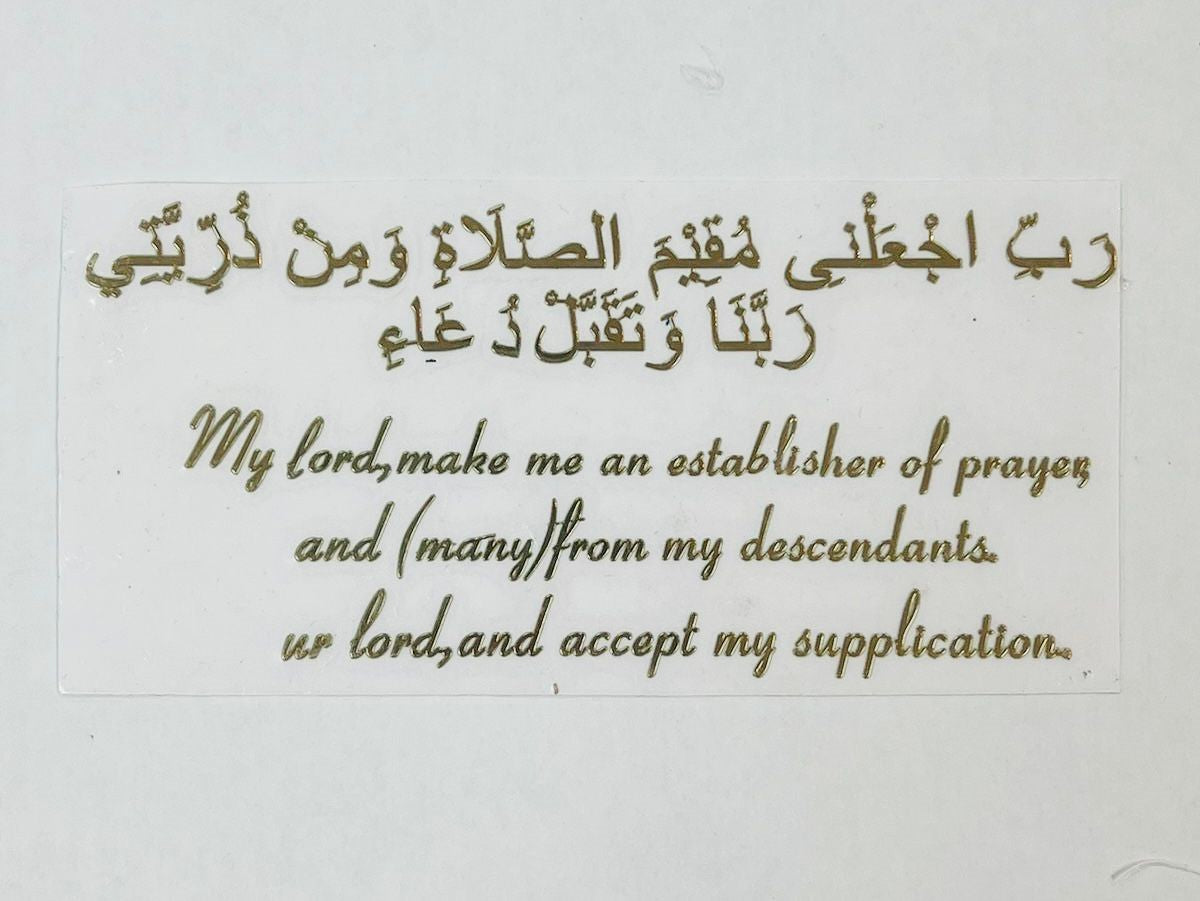 رَبِّ اجْعَلْنِى مُقِيْمَ الصَّلَاةِ وَمِنْ ذُرِّيَّتِي
رَبَّنَا وَتَقَبَّلْ دُعَاءِ
My lord,make me an establisher of prayer,
and (many)from my descendants.
ur lord,and accept my supplication.